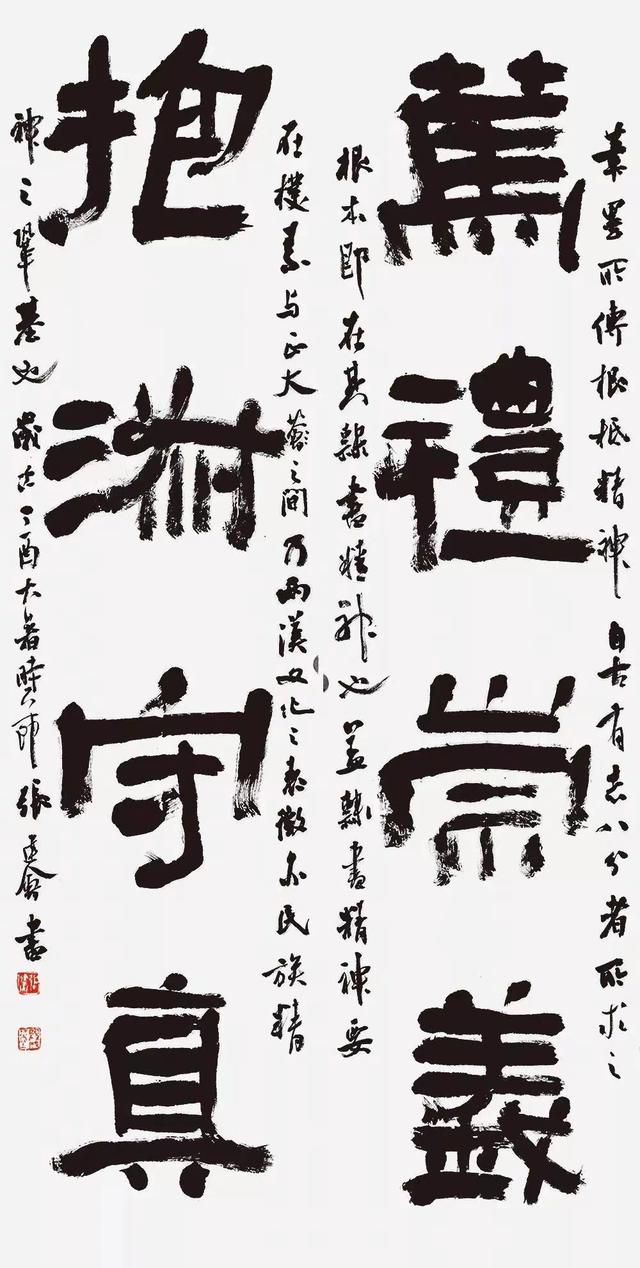 筆墨所傳根柢精神自古有志八分者所求之
篤禮崇義
根本即在其隸書精神也蓋隸書精神要
在樸素与正大之間乃兩漢文化之表徵亦民族精
抱淑守真
神之鞏基也歲在丁酉大暑時節張建會書